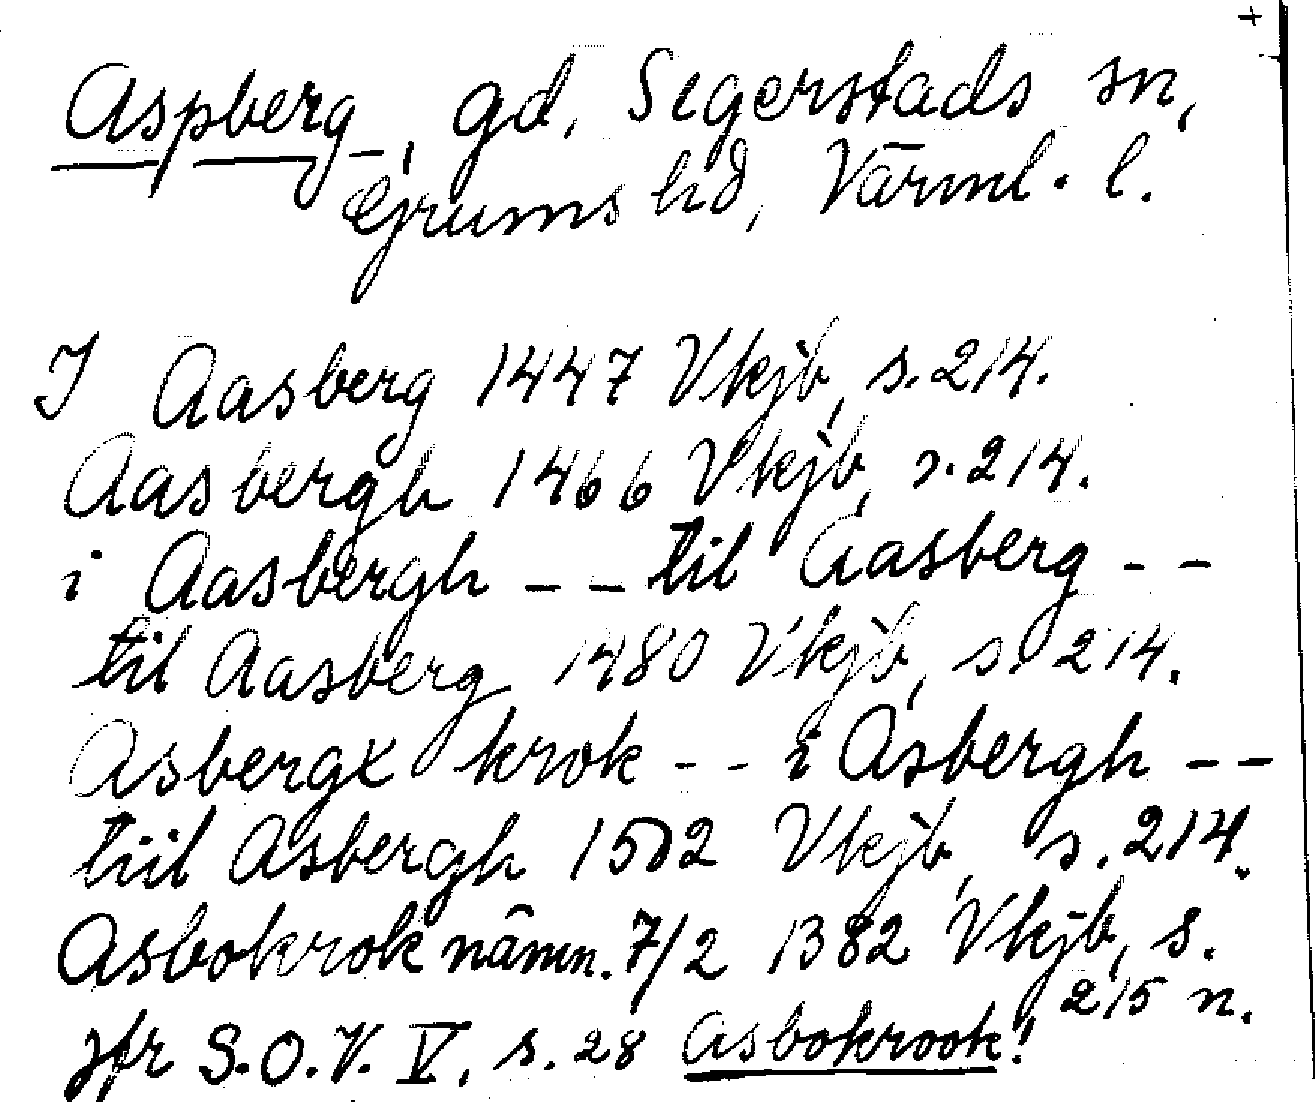 +
Aspberg, gd, Segerstads sn,
Grums hd, Värml. l.
I Aasberg 1447 Vkjb, s. 214.
Aasbergh 1466 Vkjb, s. 214.
i Aasbergh – – til Aasberg – –
til Aasberg 1480 Vkjb, s. 214.
Asbergx krok – – i Asbergh – –
tiil Asbergh 1502 Vkjb, s. 214.
Asbokrok nämn. 7/2 1382 Vkjb, s.
215 n.
jfr S.O.V. V, s. 28 Asbokrook!